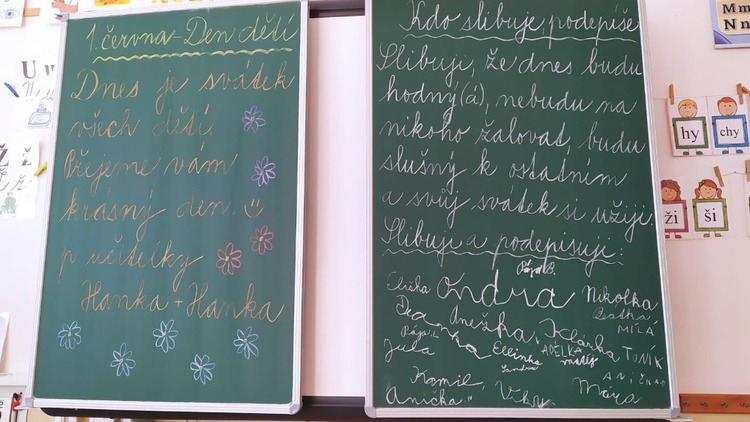 1. června - Den dětí
Dnes je svátek
všech dětí.
Přejeme vám
krásný den.
p. učitelky
Hanka + Hanka
Kdo slibuje, podepíše
Slibuji, že dnes budu
hodný(á), nebudu na
nikoho žalovat, budu
slušný k ostatním
a svůj svátek si užiji.
Slibuji a podepisuji:
Pája B.
Eliška Ondra Nikolka
MÍLA
Anežka Klárka TONÍK
Pája L. Ellinka ADÉLKA Matěj
Jula
Kamil Mára
Anička
Mm
Nn
U u
Ž ž
hy chy
ži ši